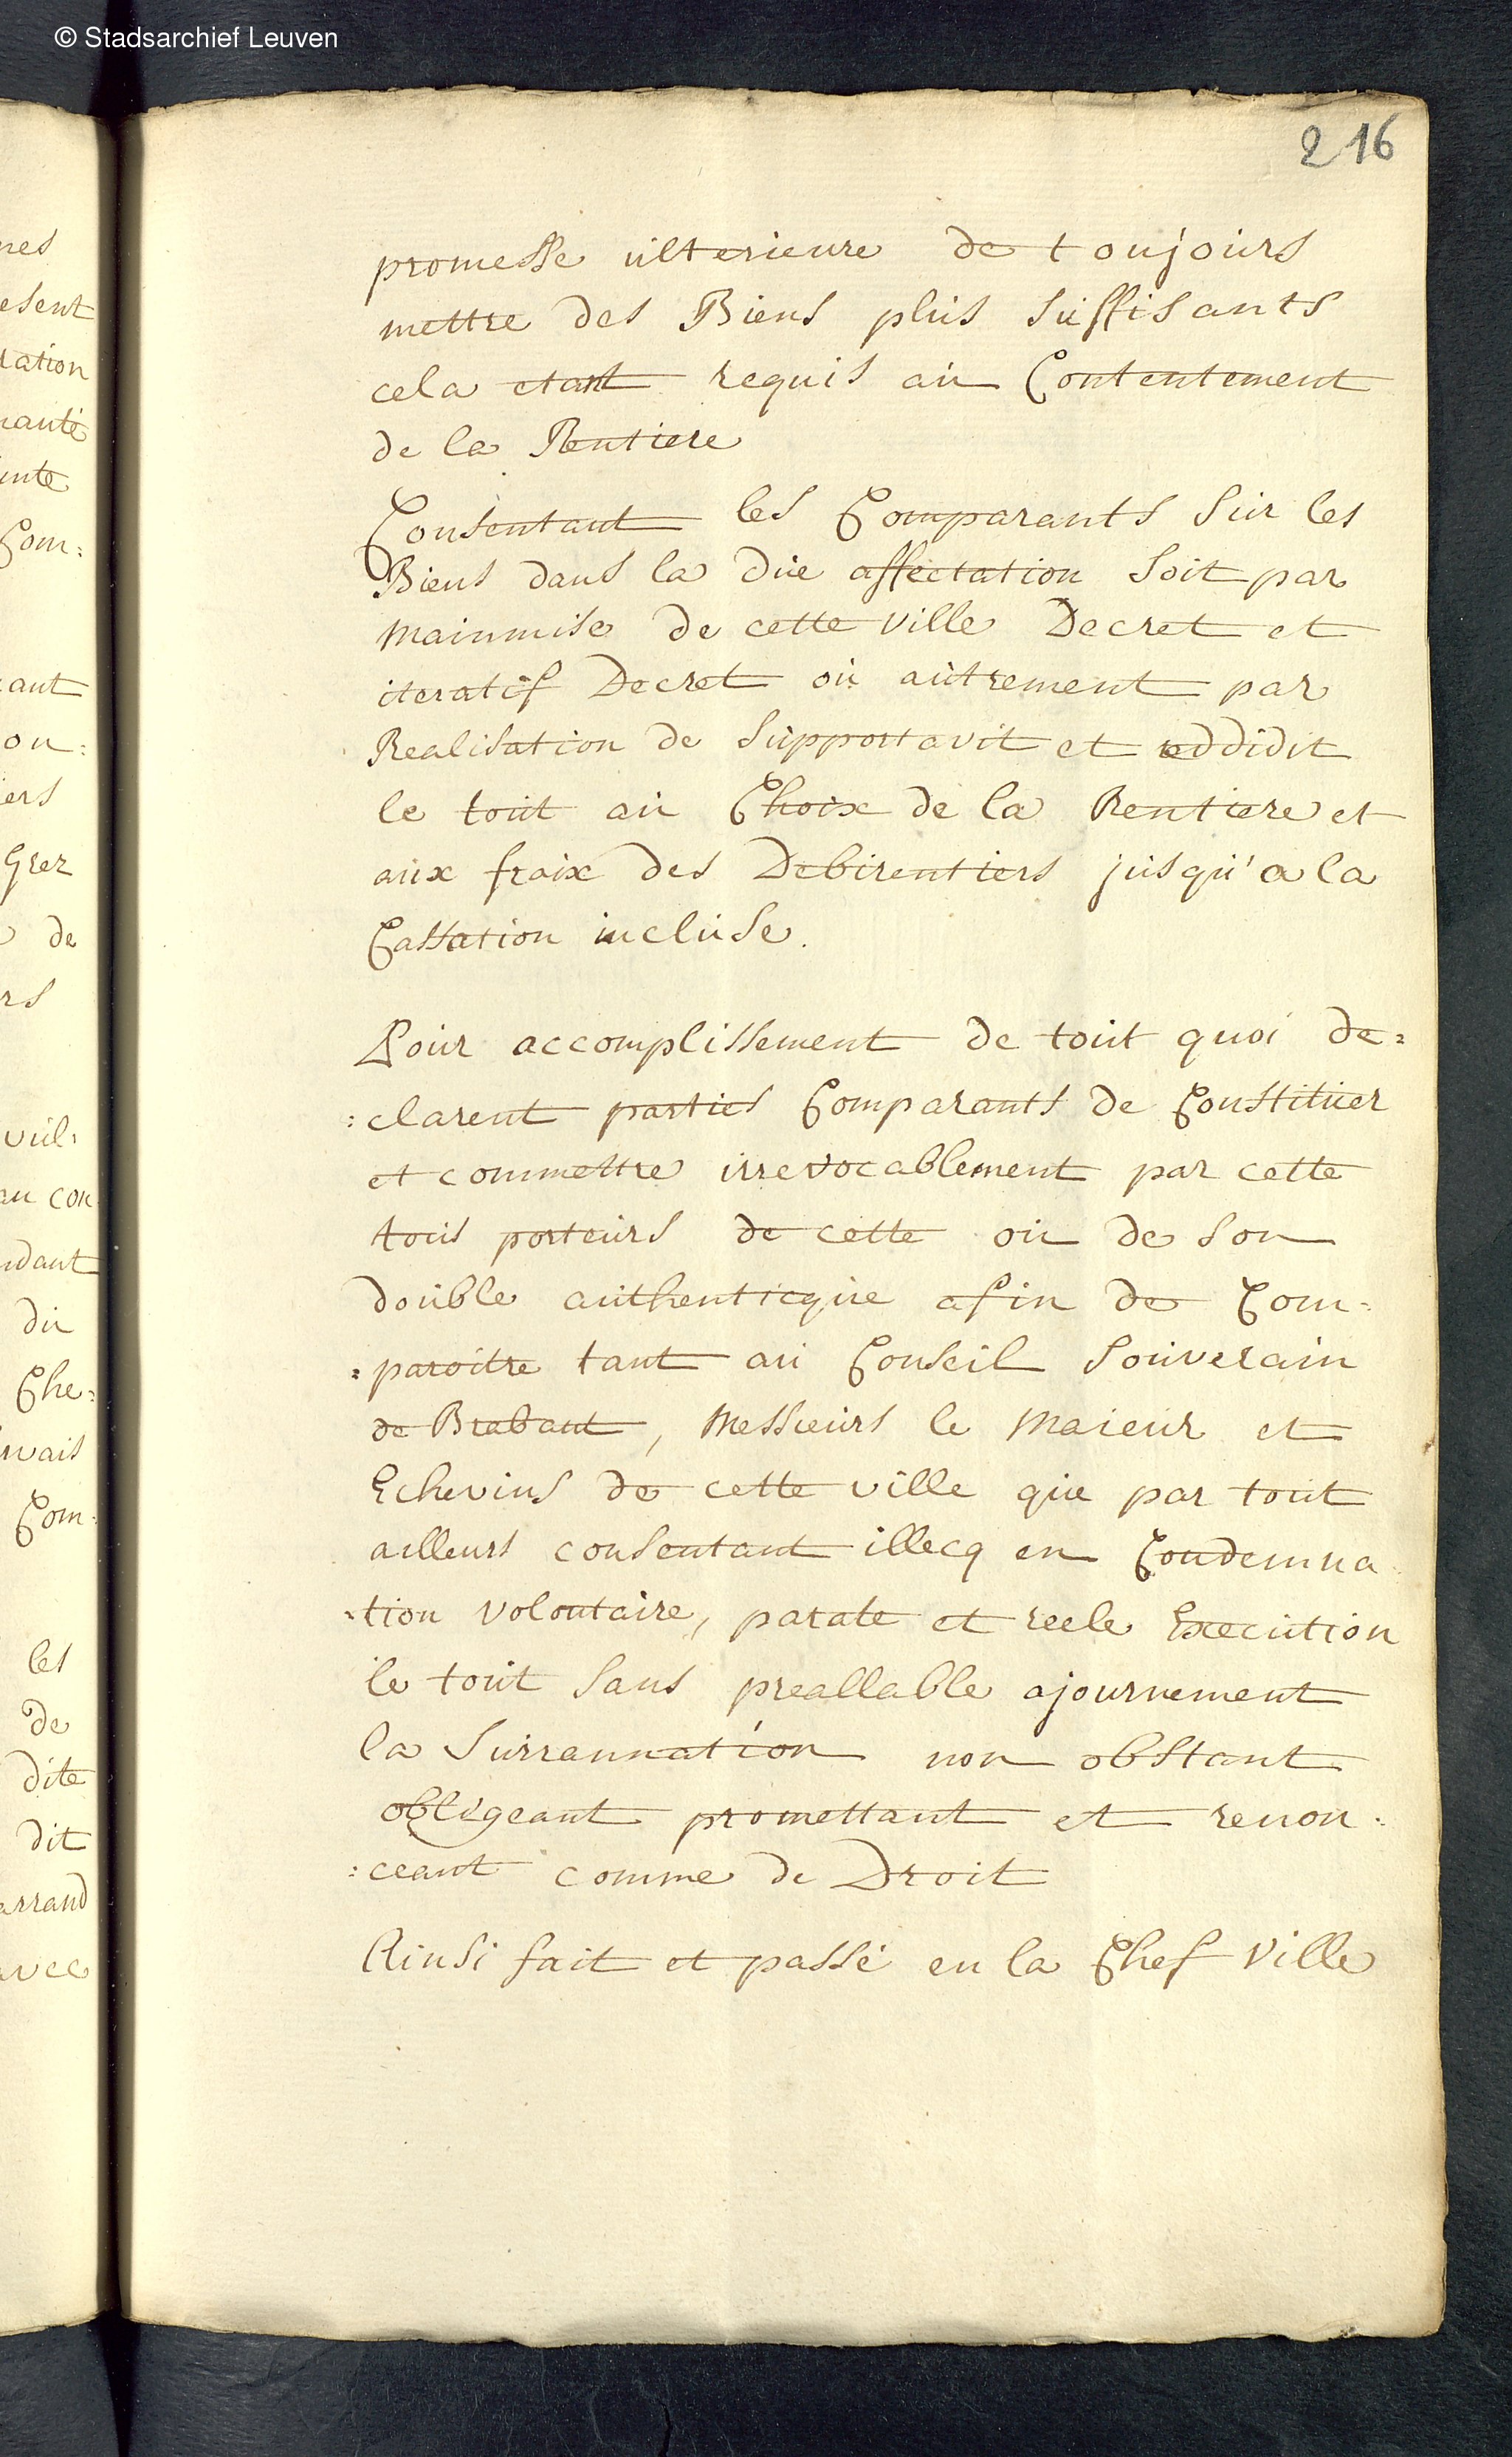 © Stadsarchief Leuven
216
promesse ulterieure de toujours
mettre des Biens plus suffisants
cela etant requis au Contentement
de la Rentiere
Consentant les Comparants sur les
Biens dans la due affectation soit par
mainmise de cette ville Decret et
iteratif Decret ou autrement par
Realisation de supportavit et reddidit
le tout au Choix de la Rentiere et
aux fraix des Debirentiers jusqu'a la
Cassation incluse.
Pour accomplissement de tout quoi de=
:clarent parties Comparants de Constituer
et commettre irrevocablement par cette
tous porteurs de cette ou de son
double authenticque afin de Com=
=paroitre tant au Conseil Souverain
de Brabant, Messieurs le Maieur et
Echevins de cette ville que par tout
ailleurs consentant illecq en Condemna
=tion volontaire, parate et reele Execution
le tout sans preallable ajournement
la surrannation non obstant
obligeant promettant et renon:
:ceant comme de Droit
Ainsi fait et passé en la Chef ville